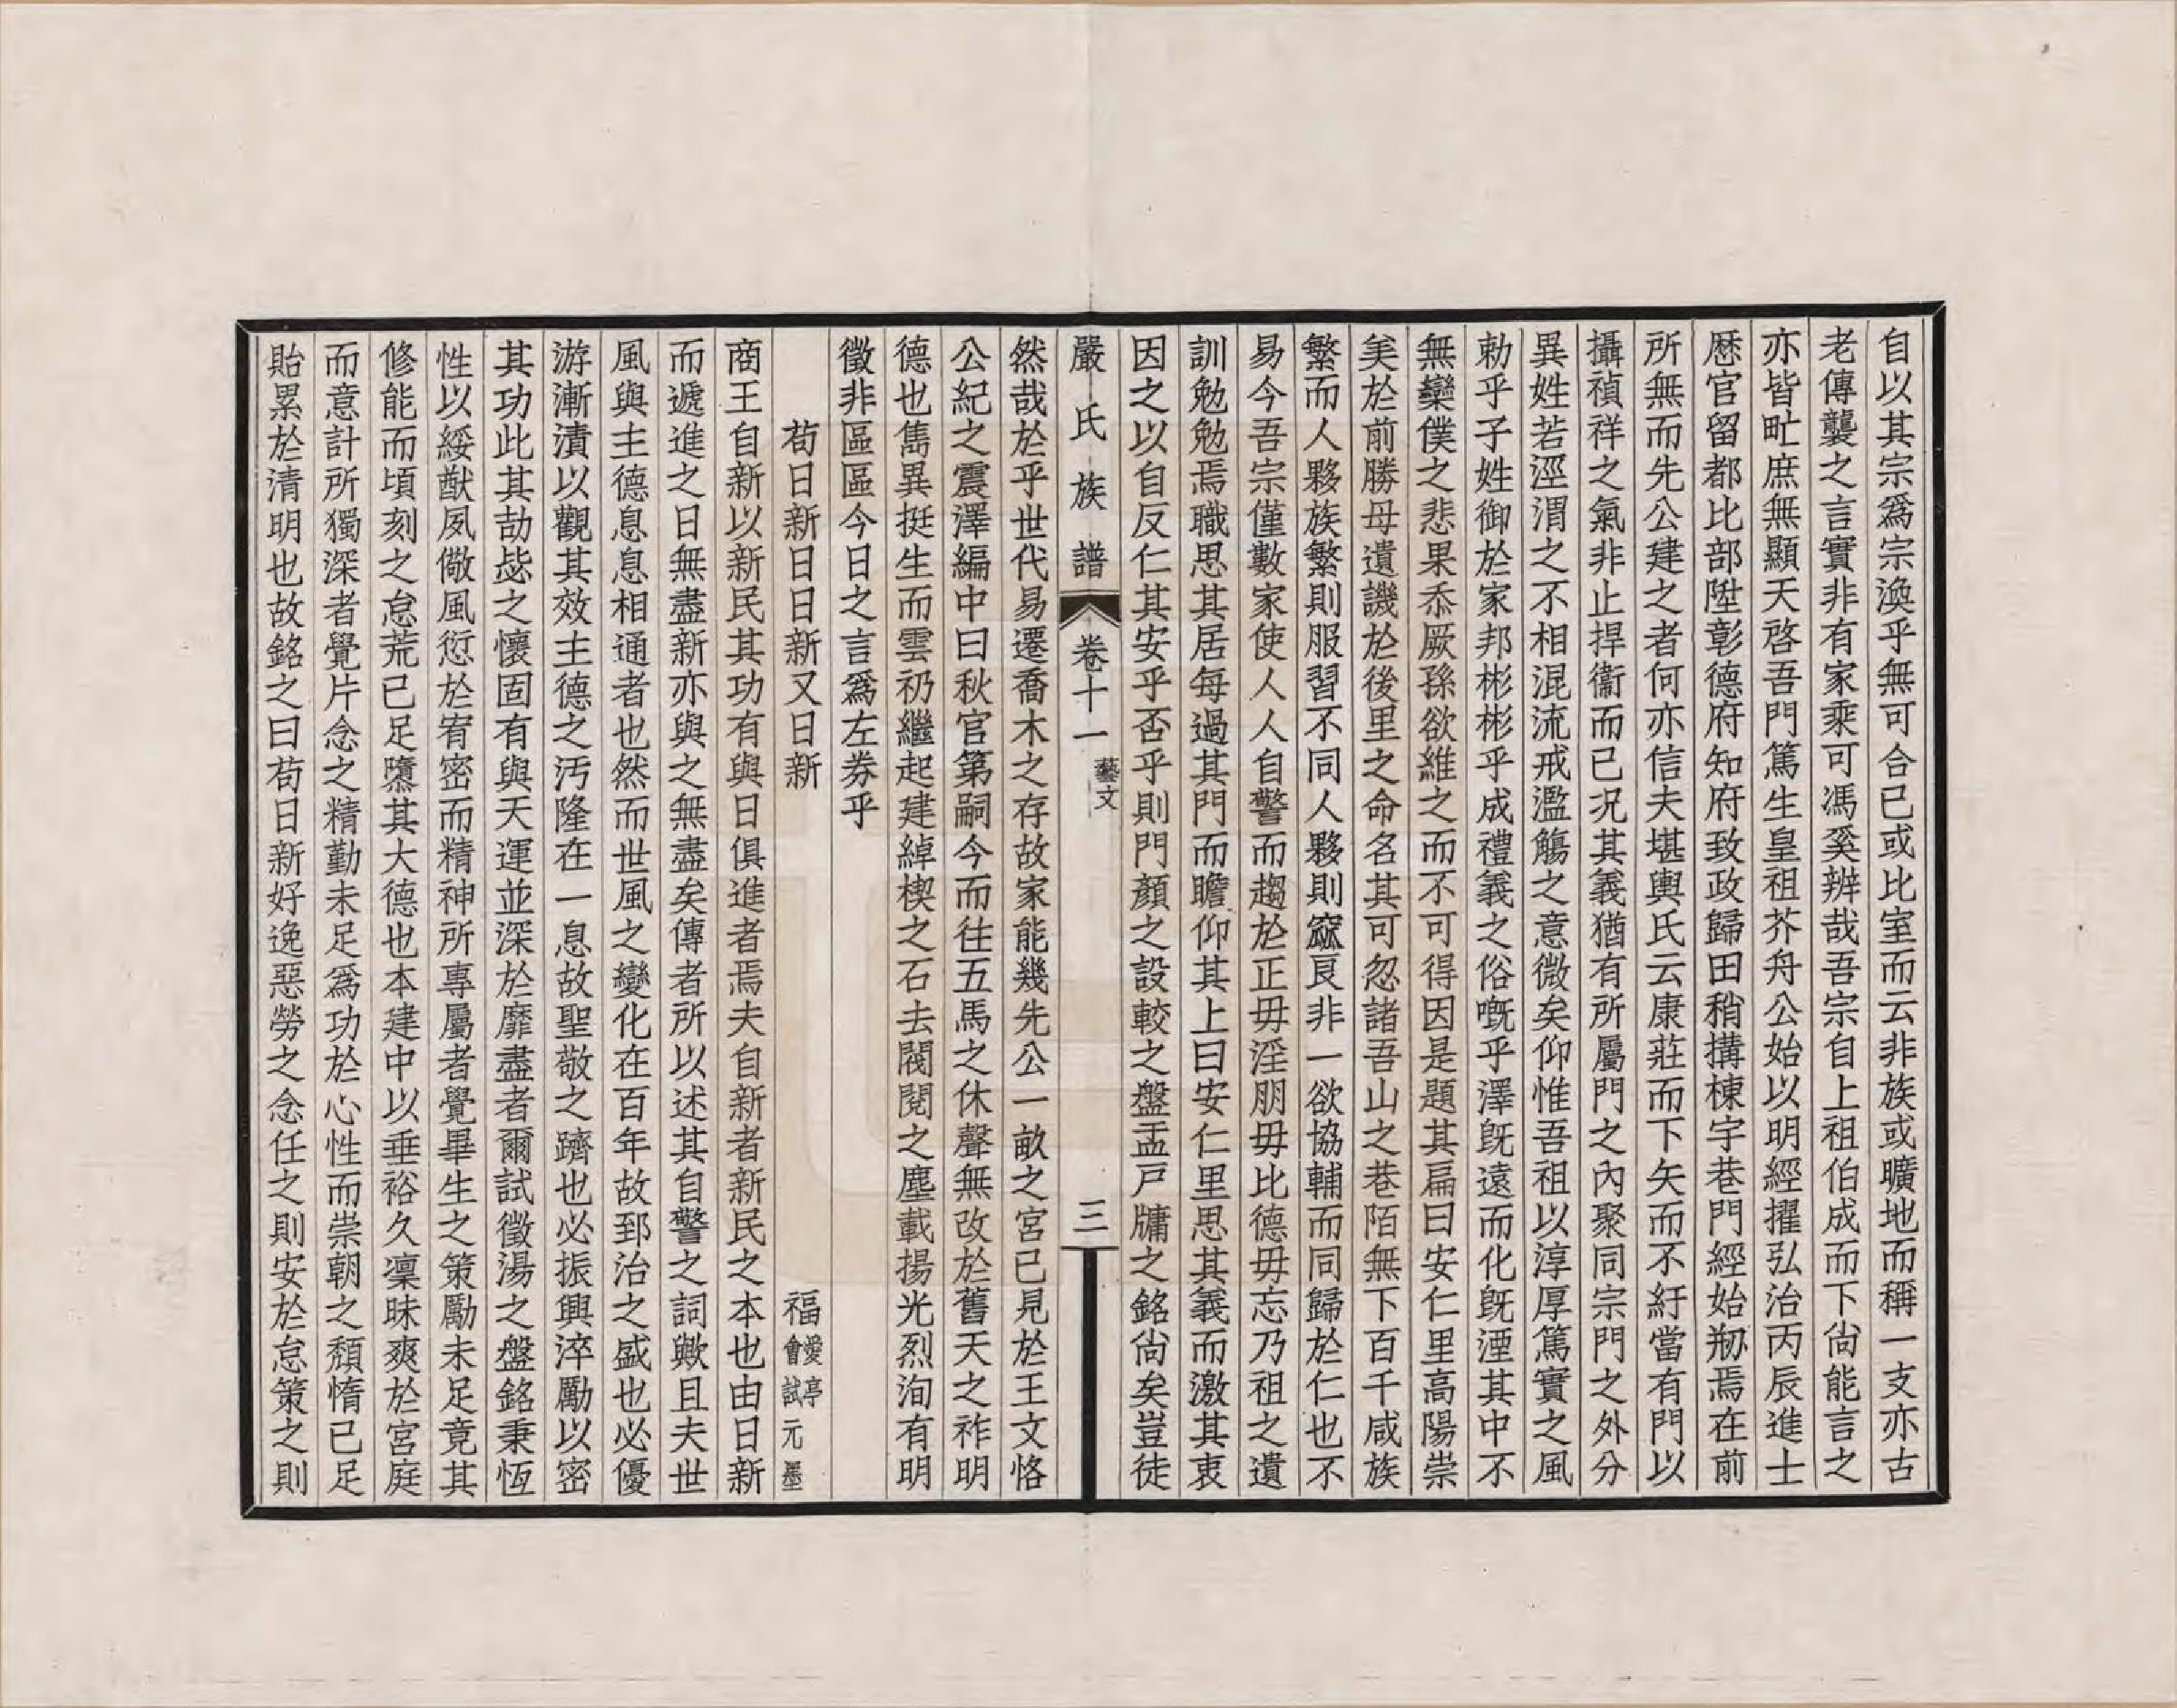 自以其宗爲宗渙乎無可合已或比室而云非族或曠地而稱一支亦古
老傳襲之言實非有家乘可馮奚辨哉吾宗自上祖伯成而下尙能言之
亦皆甿庶無顯天啓吾門篤生皇祖芥舟公始以明經擢弘治丙辰進士
歷官留都比部陞彰德府知府致政歸田稍搆棟宇巷門經始剏焉在前
所無而先公建之者何亦信夫堪輿氏云康莊而下矢而不紆當有門以
攝禎祥之氣非止捍衞而已况其義猶有所屬門之內聚同宗門之外分
異姓若涇渭之不相混流戒濫觴之意微矣仰惟吾祖以淳厚篤實之風
勅乎子姓御於家邦彬彬乎成禮義之俗嘅乎澤旣遠而化旣湮其中不
無欒僕之悲果忝厥孫欲維之而不可得因是題其扁曰安仁里高陽崇
美於前勝母遺譏於後里之命名其可忽諸吾山之巷陌無下百千咸族
繁而人夥族繁則服習不同人夥則窳良非一欲協輔而同歸於仁也不
易今吾宗僅數家使人人自警而趨於正毋淫朋毋比德毋忘乃祖之遺
訓勉勉焉職思其居每過其門而瞻仰其上曰安仁里思其義而激其衷
因之以自反仁其安乎否乎則門顏之設較之盤盂戶牖之銘尙矣豈徒
嚴氏族譜 卷十一 藝文 三
然哉於乎世代易遷喬木之存故家能幾先公一畝之宮已見於王文恪
公紀之震澤編中曰秋官第嗣今而往五馬之休聲無改於舊天之祚明
德也雋異挺生而雲礽繼起建綽楔之石去閥閱之塵載揚光烈洵有明
徵非區區今日之言爲左券乎
苟日新日日新又日新 福愛亭會試元墨
商王自新以新民其功有與日俱進者焉夫自新者新民之本也由日新
而遞進之日無盡新亦與之無盡矣傳者所以述其自警之詞歟且夫世
風與主德息息相通者也然而世風之變化在百年故郅治之盛也必優
游漸漬以觀其效主德之汚隆在一息故聖敬之躋也必振興淬勵以密
其功此其劼毖之懷固有與天運並深於靡盡者爾試徵湯之盤銘秉恆
性以綏猷夙儆風愆於宥密而精神所專屬者覺畢生之策勵未足竟其
修能而頃刻之怠荒已足隳其大德也本建中以垂裕久凜昧爽於宮庭
而意計所獨深者覺片念之精勤未足爲功於心性而崇朝之頹惰已足
貽累於清明也故銘之曰苟日新好逸惡勞之念任之則安於怠策之則